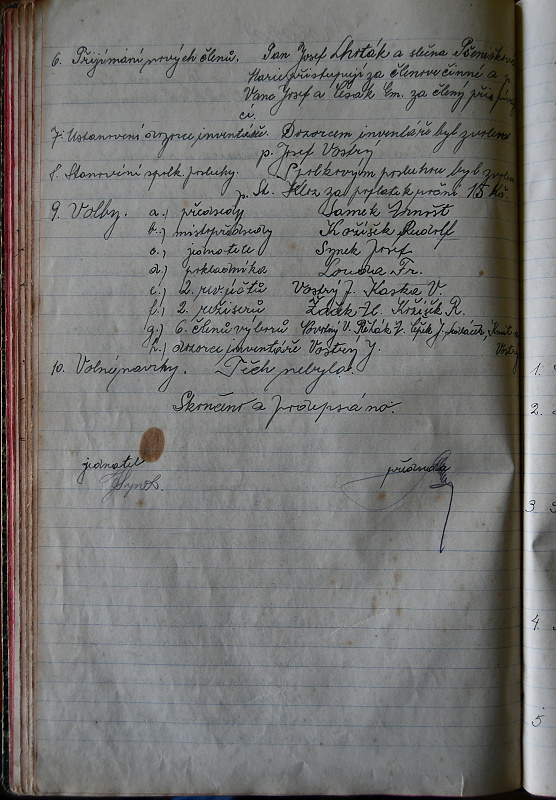 6. Přijímání nových členů. Pan Josef Lhoták a slečna
Marie přistupují za členové činné a p.
Vanc Josef a Česák Em. za členy přis
cí.
7. Ustanovení dozorce inventáře. Dozorcem inventáře byl zvolen
p. Josef Vostrý
8. Stanovení spolk. posluhy. Spolkovým posluhou byl zvolen
p. St. Kloz za poplatek roční 15 Kč.
9. Volby. a.) předsedy Samek Arnošt
b.) místopředsedy Kožíšek Rudolf
c.) jednatele Synek Josef
d.) pokladníka Louda Fr.
e.) 2. rev. účtů Vostrý J. Kaska V.
f.) 2. režiserů Žák Kožíšek R.
g.) 6. členů výborů V. Řihák J.
h.) dozorce inventáře Vostrý J. Vostrý
10. Volné návrhy. Těch nebylo.
Skončeno a podepsáno.
jednatel předseda
JSynek.
1.
2.
3.
4.
5